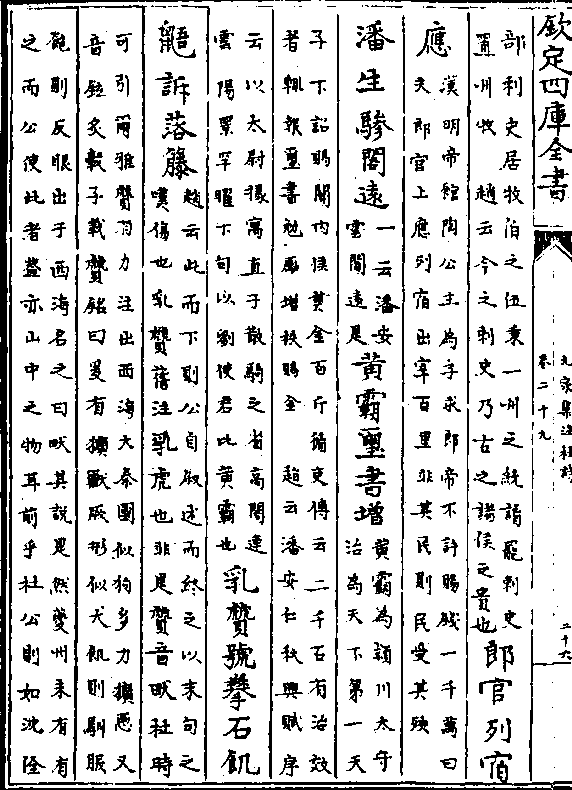 欽定四庫全書
九家集注杜詩
卷二十九
二十六
部刺史居牧伯之位秉一州之統請罷刺史
置州牧 趙云今之刺史乃古之諸侯之貴也
郎官列宿
應
漢明帝館陶公主為子求郎帝不許賜錢一千萬曰
夫郎官上應列宿出宰百里非其民則民受其殃
潘生驂閣遠
一云潘安
雲閣遠是
黃霸璽書增
黃霸為潁川太守
治為天下第一天
子下詔賜關內侯黃金百斤循吏傳云二千石有治效
者輒報璽書勉厲增秩賜金 趙云潘安仁秋興賦序
云以太尉掾寓直于散騎之省高閣連
雲陽景罕曜下句以劉使君比黃霸也
乳贙號攀石飢
鼯訴落藤
趙云此而下則公自叙述而終之以末句之
嘆傷也乳贙舊注乳虎也非是贙音畎杜時
可引爾雅贙有力注出西海大秦國似狗多力獷惡又
音鉉炙轂子載贙銘曰爰有獷獸厥形似犬飢則馴服
飽則反眼出于西海名之曰畎其說是然夔州未有有
之而公使此者蓋亦山中之物耳前乎杜公則如沈佺